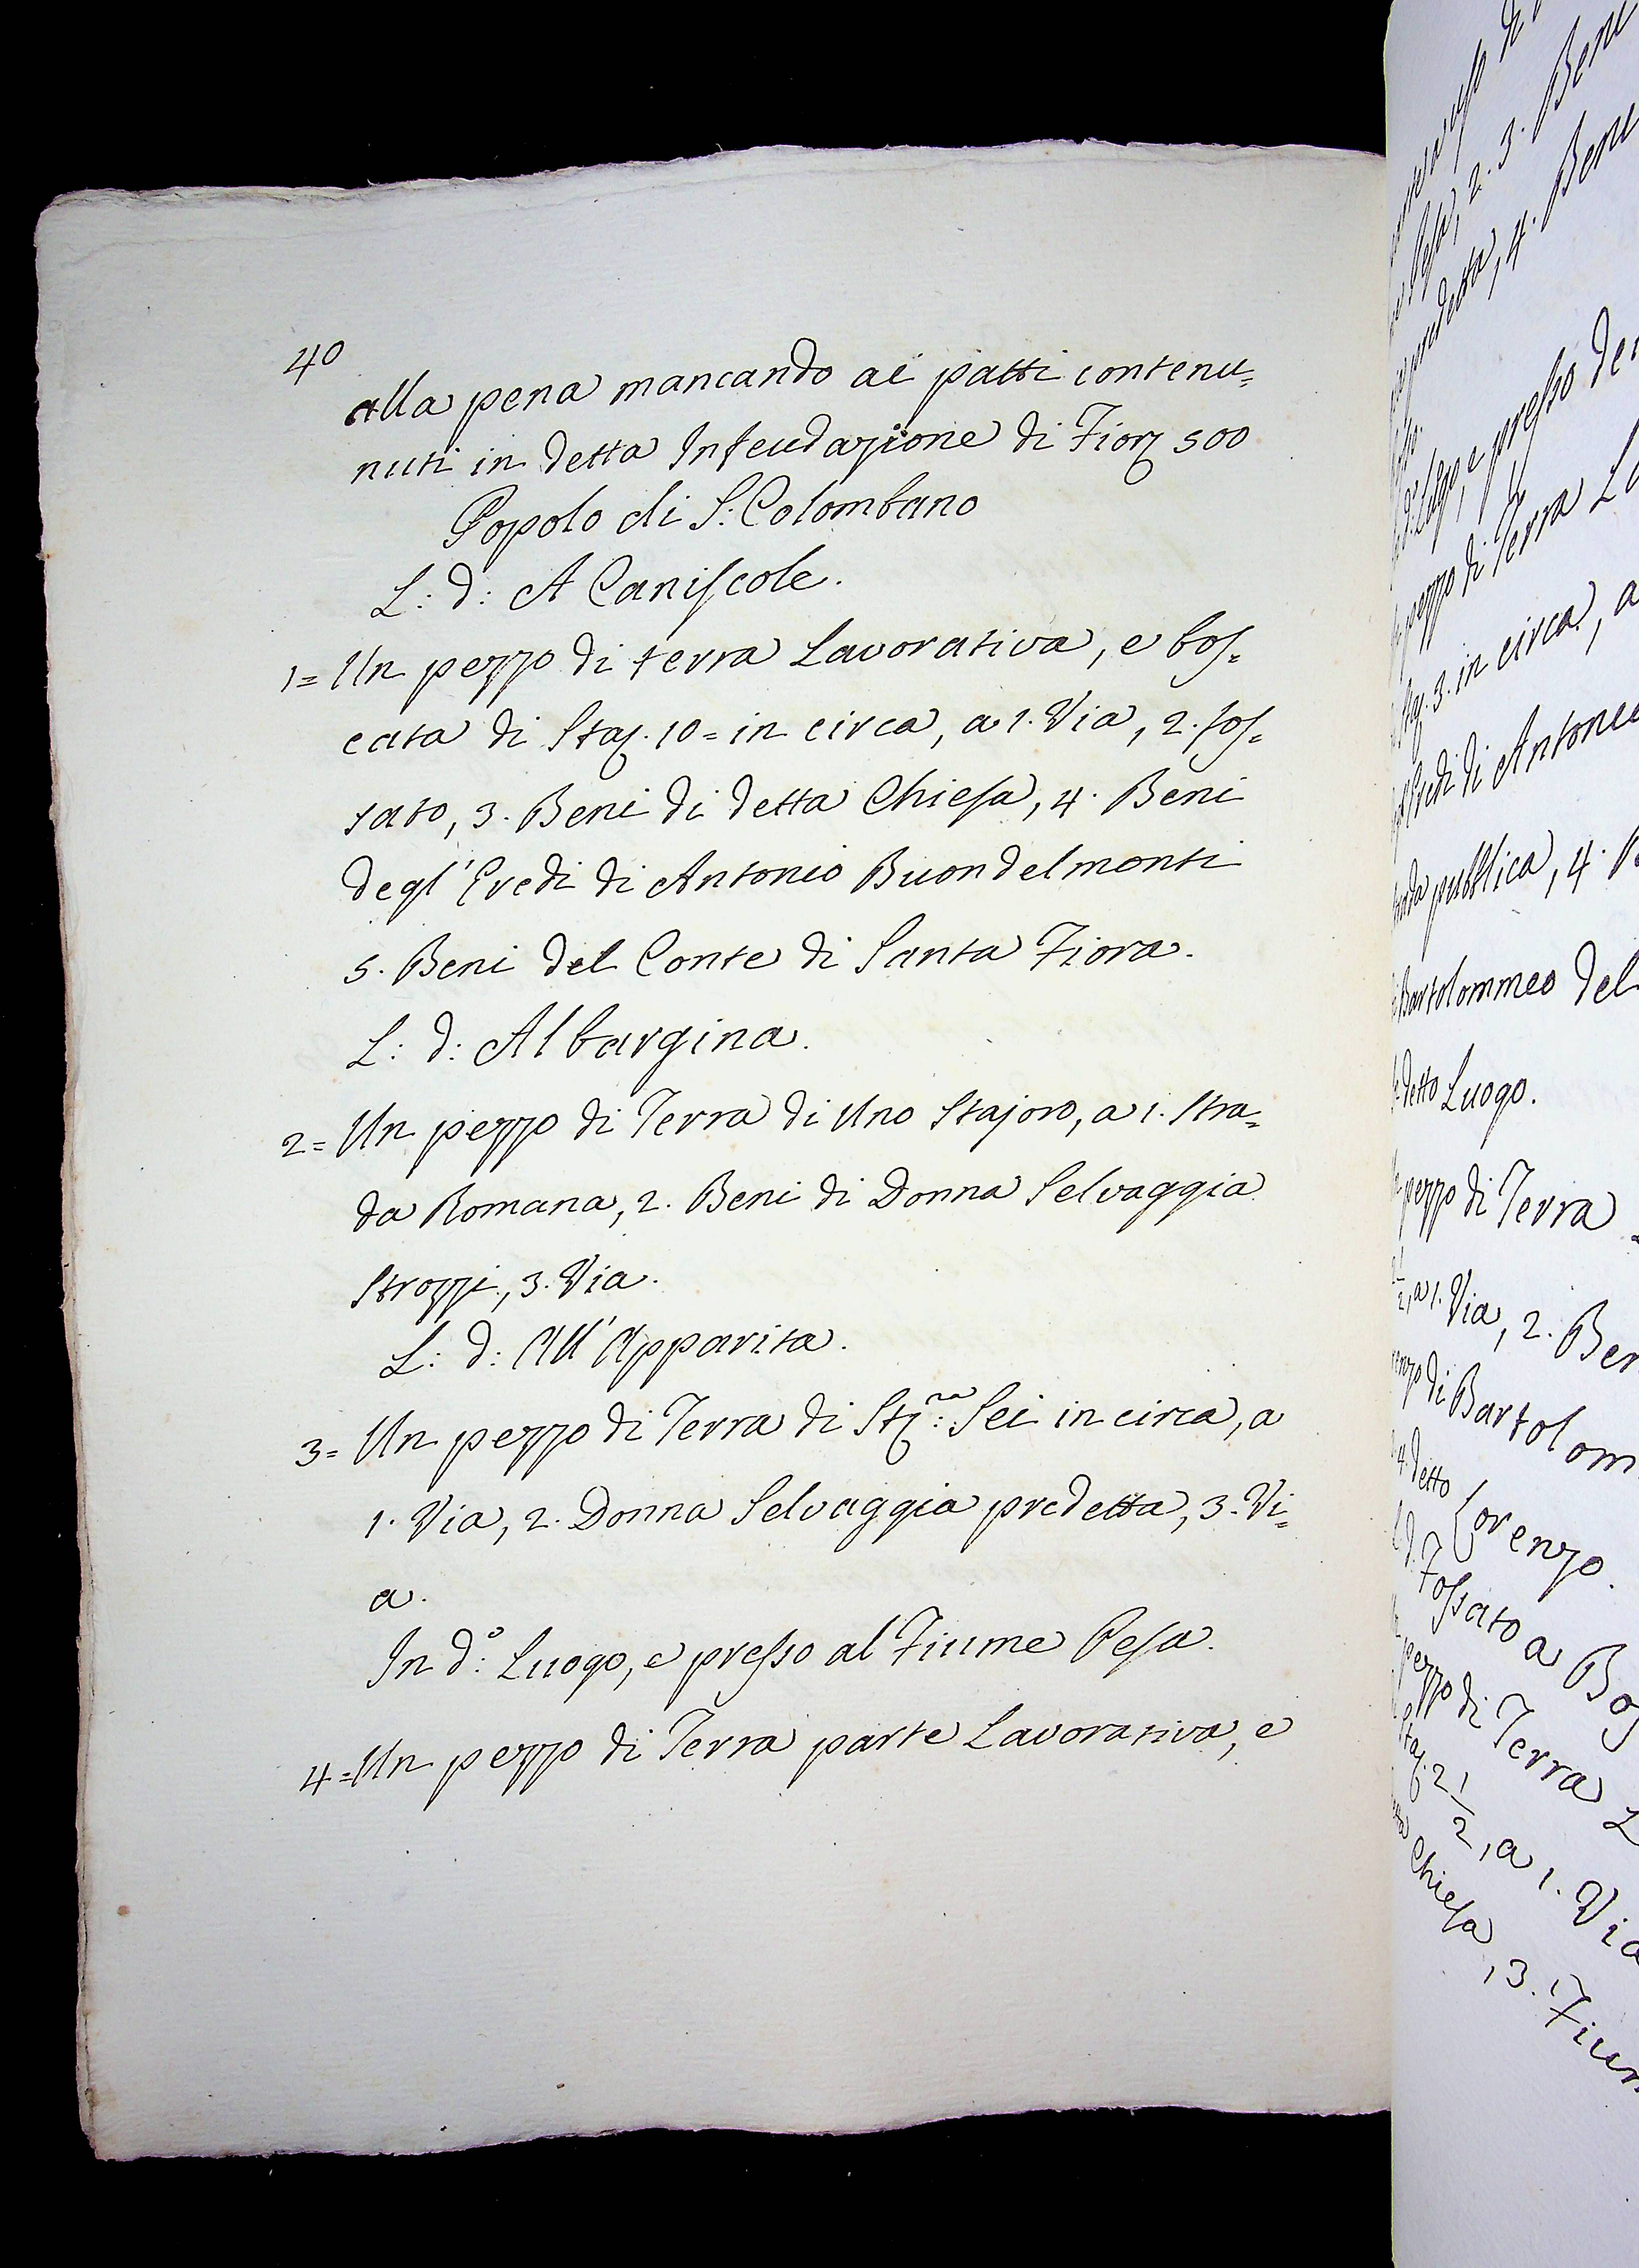 40
alla pena mancando ai patti contenu=
nuti in detta Infeudazione di Fior: 500
Popolo di S: Colombano
L: d: A Caniscole.
1= Un pezzo di terra Lavorativa, e bos=
cata di Staj. 10= in circa, a 1. Via, 2. fos=
sato, 3. Beni di detta Chiesa, 4. Beni
degl' Eredi di Antonio Buondelmonti
5. Beni del Conte di Santa Fiora.
L: d: Albargina.
2= Un pezzo di Terra di Uno Stajoro, a 1. Stra=
da Romana, 2. Beni di Donna Selvaggia
Strozzi, 3. Via.
L: d: All' Apparita.
3= Un pezzo di Terra di Stj:ra Sei in circa, a
1. Via, 2. Donna Selvaggia predetta, 3. Vi=
a.
In d:o Luogo, e presso al Fiume Pesa.
4= Un pezzo di Terra parte Lavorativa, e
2. 3. Beni
predetta, 4. Beni
Luogo, e presso
pezzo di Terra
3. in circa, a
di Antonio
pubblica, 4.
Bartolommeo del
detto Luogo.
pezzo di Terra
1/2, a 1. Via, 2. Ben
di Bartolom
4. detto Lorenzo.
Fossato a
pezzo di Terra L
Staj. 2 1/2, a 1. Via
Chiesa, 3. Fium